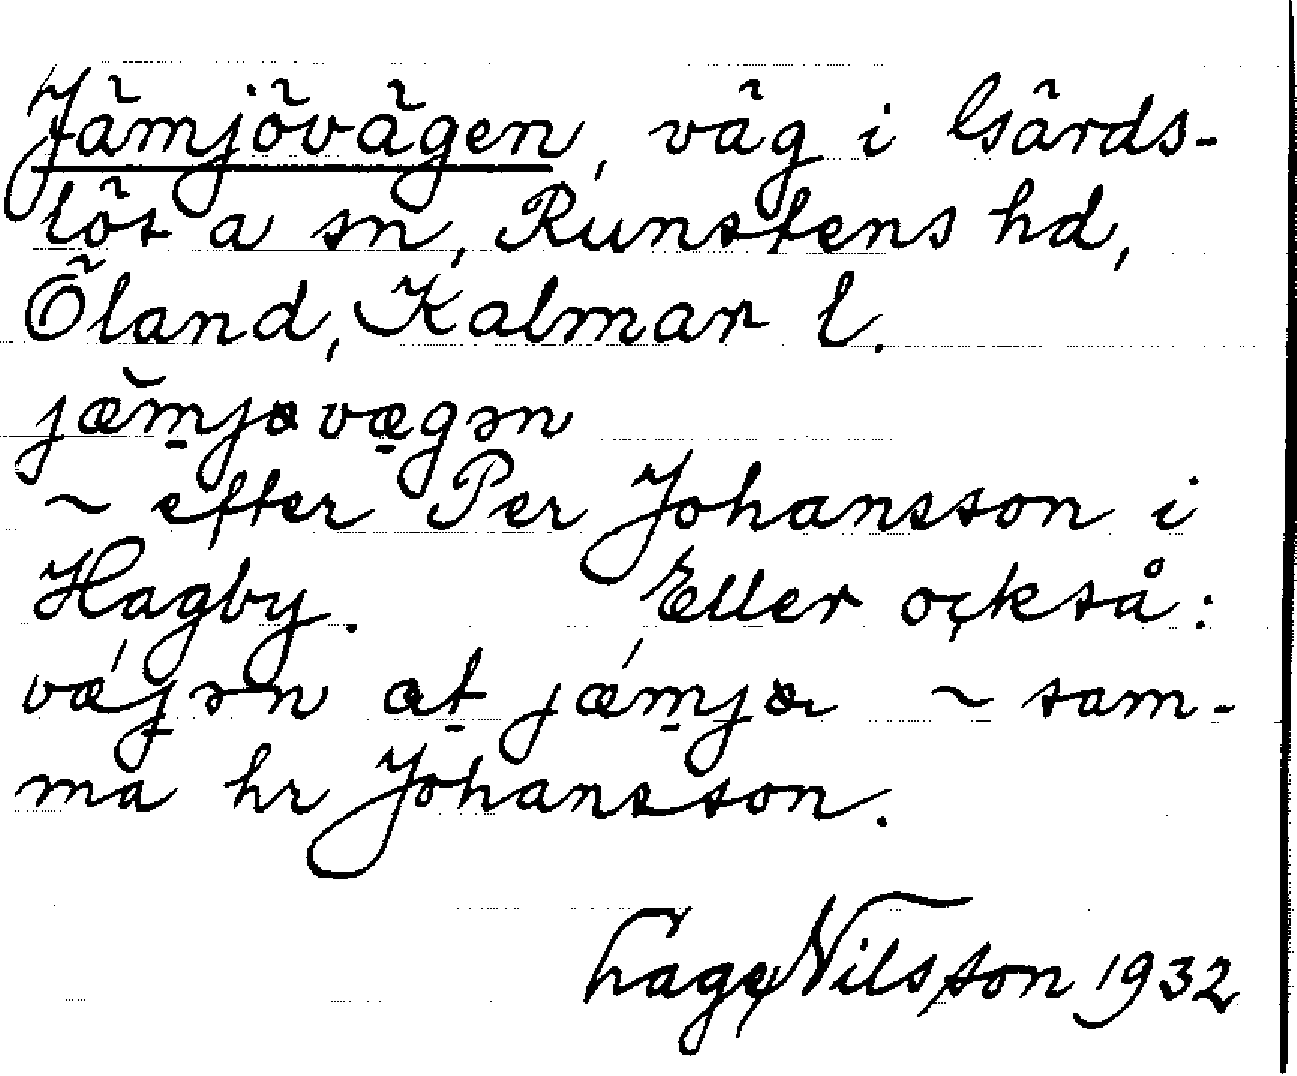 Jämjövägen, väg i Gärds-
lösa sn, Runstens hd,
Öland, Kalmar l.
jæ̆m̱jɷvæ̱gən
~ efter Per Johansson i
Hagby. Eller också:
vǽjən at̠ jǽm̱jɷ ~ sam-
ma hr Johansson.
Lage Nilsson 1932